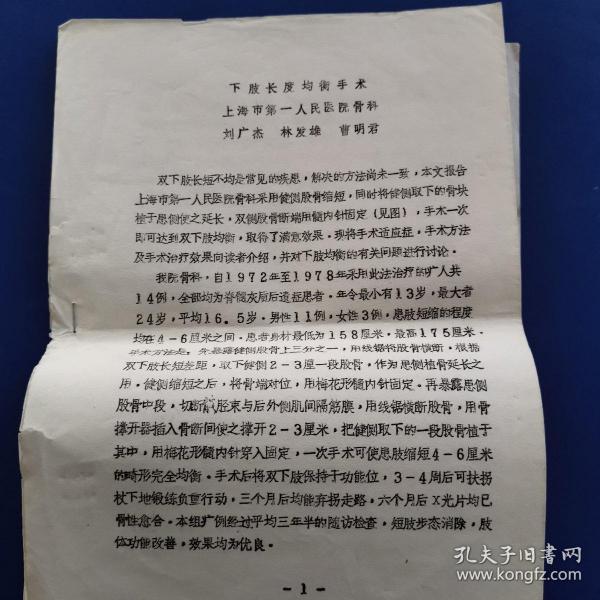 下肢长度均衡手术
上海市第一人民医院骨科
刘广杰 林发雄 曹明君
双下肢长短不均是常见的疾患，解决的方法尚未一致，本文报告
上海市第一人民医院骨科采用健侧股骨缩短，同时将健侧取下的骨块
植于患侧使之延长，双侧股骨断端用髓内针固定（见图），手术一次
即可达到双下肢均衡，取得了满意效果。现将手术适应症，手术方法
及手术治疗效果向读者介绍，并对下肢均衡的有关问题进行讨论。
我院骨科，自1972年至1978年采用此法治疗的疒人共
14例，全部均为脊髓灰质后遗症患者。年令最小有13岁，最大者
24岁，平均16.5岁。男性11例，女性3例，患肢短缩的程度
均在4-6厘米之间。患者身材最低为158厘米。最高175厘米。
手术方法是：先暴露健侧股骨上三分之一，用线锯将股骨横断。根据
双下肢长短差距，取下健侧2-3厘一段股骨，作为患侧植骨延长之
用。健侧缩短之后，将骨端对位，用梅花形髓内针固定。再暴露患侧
股骨中段，切断髂胫束与后外侧肌间隔筋膜，用线锯横断股骨，用骨
撑开器插入骨断间使之撑开2-3厘米，把健侧取下的一段股骨植于
其中，用梅花形髓内针穿入固定，一次手术可使患肢短缩4-6厘米
的畸形完全均衡。手术后将双下肢保持于功能位，3-4周后可扶拐
杖下地锻练负重行动，三个月后均能弃拐走路，六个月后X光片均已
骨性愈合。本组疒例经过平均三年半的随访检查，短肢步态消除，肢
体功能改善，效果均为优良。
-1-
孔夫子旧书网
www.kongfz.com